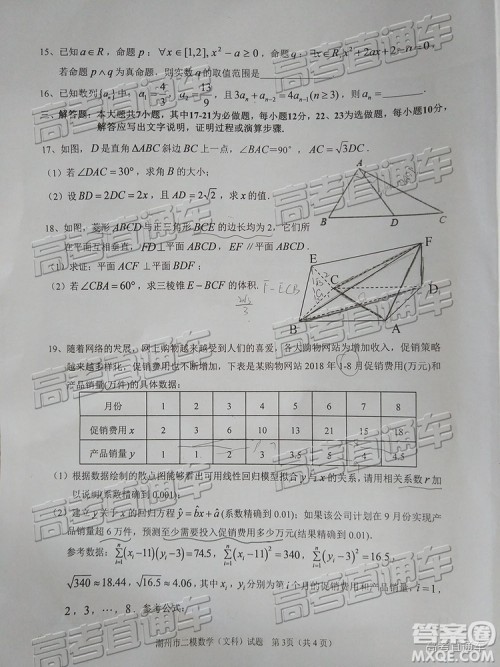 15、已知a∈R，命题p：∀x∈[1,2],x²-a≥0，命题q：∃x∈R,x²+2ax+2-a=0，
若命题p∧q为真命题，则实数a的取值范围是
16、已知数列{aₙ}中，a₁=4/3，a₂=13/9，且3aₙ+aₙ₋₂=4aₙ₋₁(n≥3)，则aₙ=______.
三、解答题：本大题共7小题，其中17-21为必做题，每小题12分，22、23为选做题，每小题10分，
解答应写出文字说明，证明过程或演算步骤.
17、如图，D是直角ΔABC斜边BC上一点，∠BAC=90°，AC=√3DC.
（1）若∠DAC=30°，求角B的大小；
（2）设BD=2DC=2x，且AD=2√2，求x的值.
A
B D C
18、如图，菱形ABCD与正三角形BCE的边长均为2，它们所
在平面互相垂直，FD⊥平面ABCD，EF∥平面ABCD.
（1）求证：平面ACF⊥平面BDF；
（2）若∠CBA=60°，求三棱锥E-BCF的体积.
F-ECB
F
E
C
D
B
A
19、随着网络的发展，网上购物越来越受到人们的喜爱，各大购物网站为增加收入，促销策略
越来越多样化，促销费用也不断增加，下表是某购物网站2018年1-8月促销费用(万元)和
产品销量(万件)的具体数据：
月份 1 2 3 4 5 6 7 8
促销费用x 2 3 6 10 13 21 15 18
产品销量y 1 1 2 3 3.5 5 4 4.5
（1）根据数据绘制的散点图能够看出可用线性回归模型拟合y与x的关系，请用相关系数r加
以说明(系数精确到0.001)；
（2）建立y关于x的回归方程ŷ=b̂x+â(系数精确到0.01)；如果该公司计划在9月份实现产
品销量超6万件，预测至少需要投入促销费用多少万元(结果精确到0.01).
参考数据：∑(xᵢ-11)(yᵢ-3)=74.5，∑(xᵢ-11)²=340，∑(yᵢ-3)²=16.5，
√340≈18.44，√16.5≈4.06，其中xᵢ,yᵢ分别为第i个月的促销费用和产品销量，i=1，
2，3，…，8. 参考公式：
潮州市二模数学（文科）试题 第3页（共4页）
高考直通车